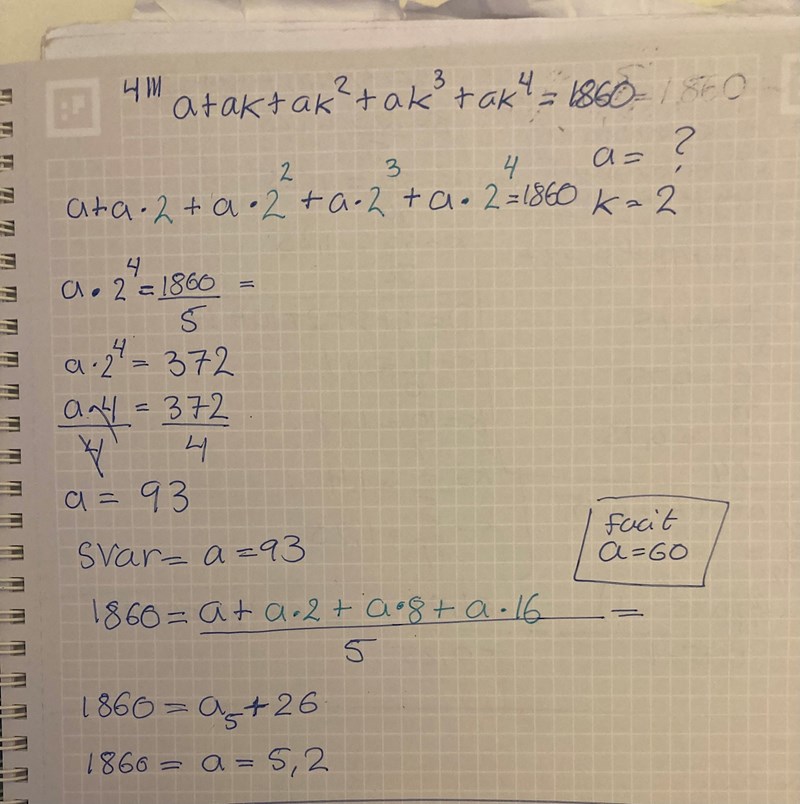 4111 a+ak+ak²+ak³+ak⁴=1860=1860
a= ?
a+a·2+a·2²+a·2³+a·2⁴=1860 k=2
a·2⁴=1860/5 =
a·2⁴=372
a·4/4=372/4
a=93
Svar= a=93
facit
a=60
1860=a+a·2+a·8+a·16/5 =
1860=a₅+26
1860= a=5,2